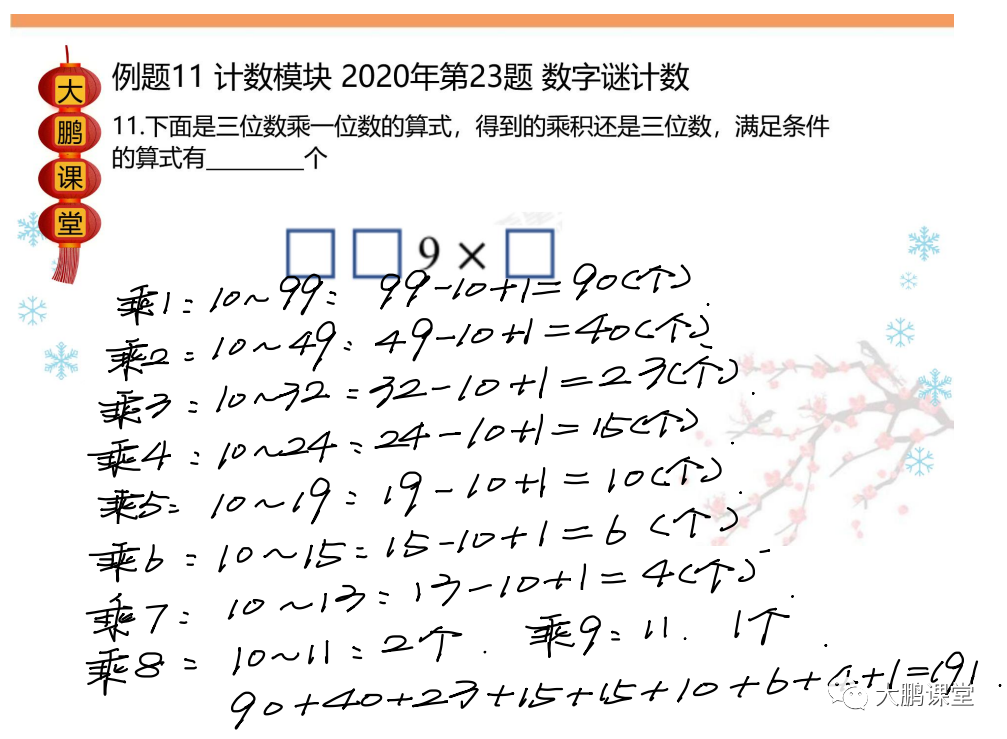 大鹏课堂
例题11 计数模块 2020年第23题 数字谜计数
11.下面是三位数乘一位数的算式，得到的乘积还是三位数，满足条件
的算式有________个
□□9×□
乘1=10~99= 99-10+1=90(个)
乘2=10~49=49-10+1=40(个)
乘3=10~32=32-10+1=23(个)
乘4=10~24=24-10+1=15(个)
乘5=10~19=19-10+1=10(个)
乘6=10~15=15-10+1=6(个)
乘7=10~13=13-10+1=4(个)
乘8=10~11=2个. 乘9=11. 1个.
90+40+23+15+15+10+6+4+1=191.
大鹏课堂